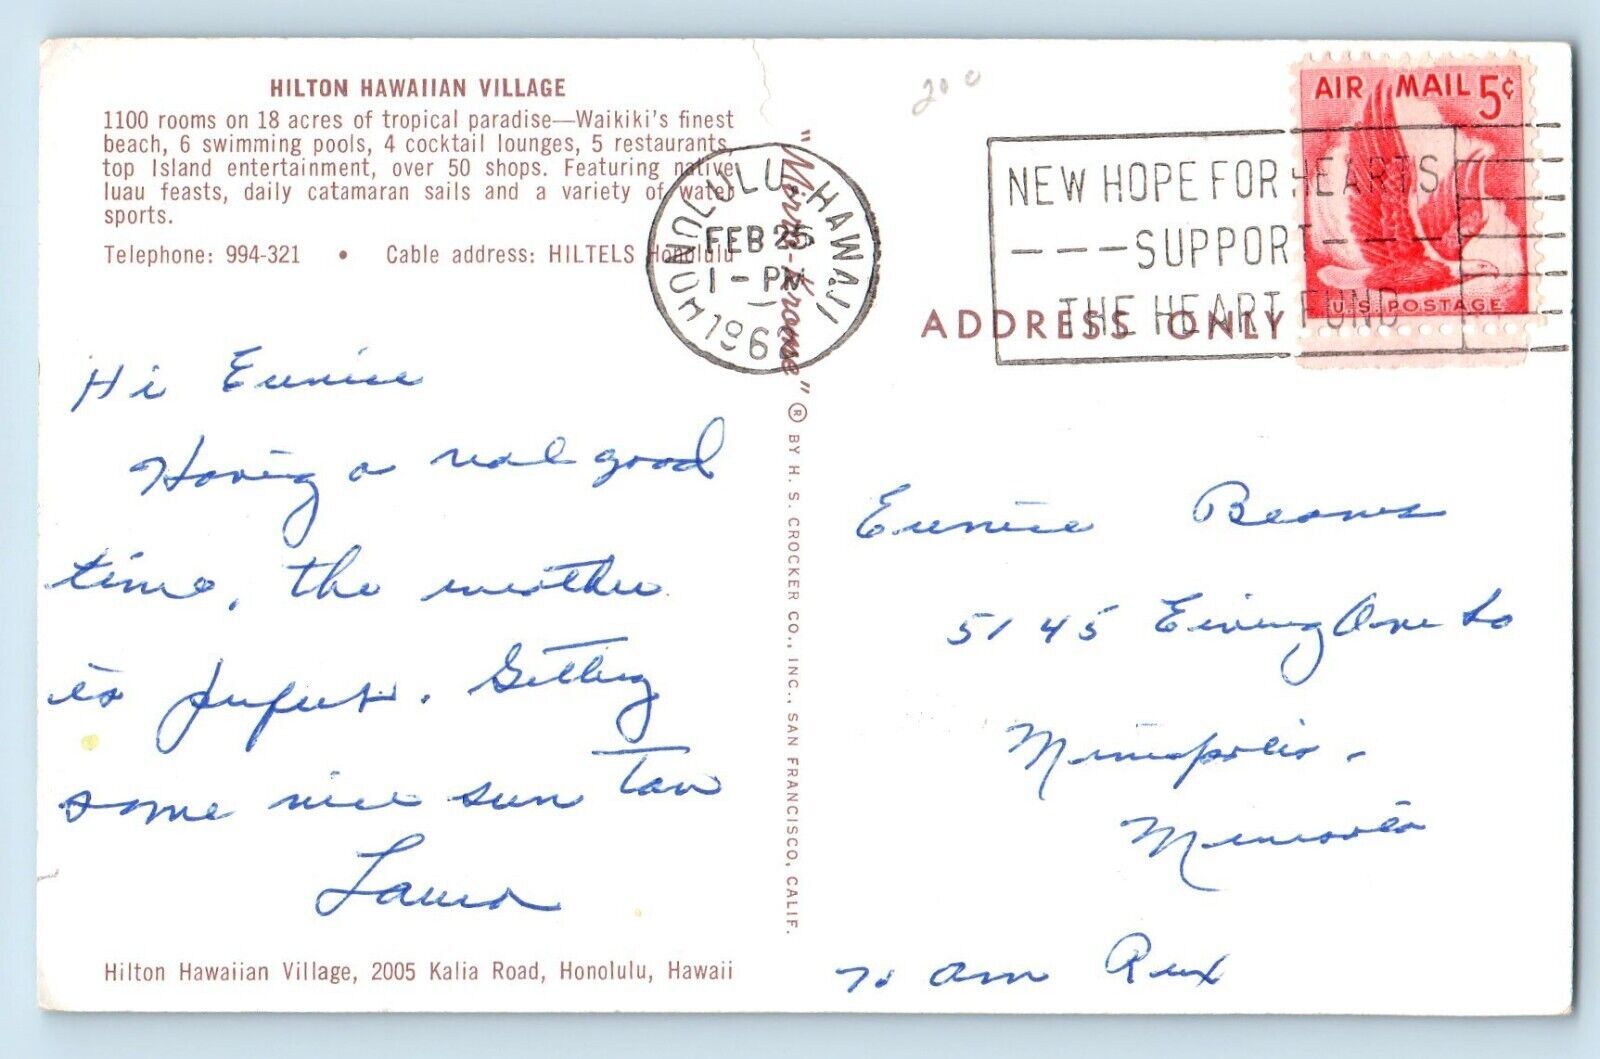 HILTON HAWAIIAN VILLAGE
1100 rooms on 18 acres of tropical paradise—Waikiki's finest
beach, 6 swimming pools, 4 cocktail lounges, 5 restaurants,
top Island entertainment, over 50 shops. Featuring native
luau feasts, daily catamaran sails and a variety of water
sports.
Telephone: 994-321 • Cable address: HILTELS Honolulu
Hi Eunice
Having a real good
time, the weather
is perfect. Getting
some nice sun tan
Laura
Hilton Hawaiian Village, 2005 Kalia Road, Honolulu, Hawaii
"Mirro-Krome" ® BY H. S. CROCKER CO., INC., SAN FRANCISCO, CALIF.
HONOLULU, HAWAII
FEB 25
1 - PM
196
200
NEW HOPE FOR HEARTS
SUPPORT
THE HEART FUND
AIR MAIL 5¢
U.S. POSTAGE
ADDRESS ONLY
Eunice
5145 So
Minneapolis